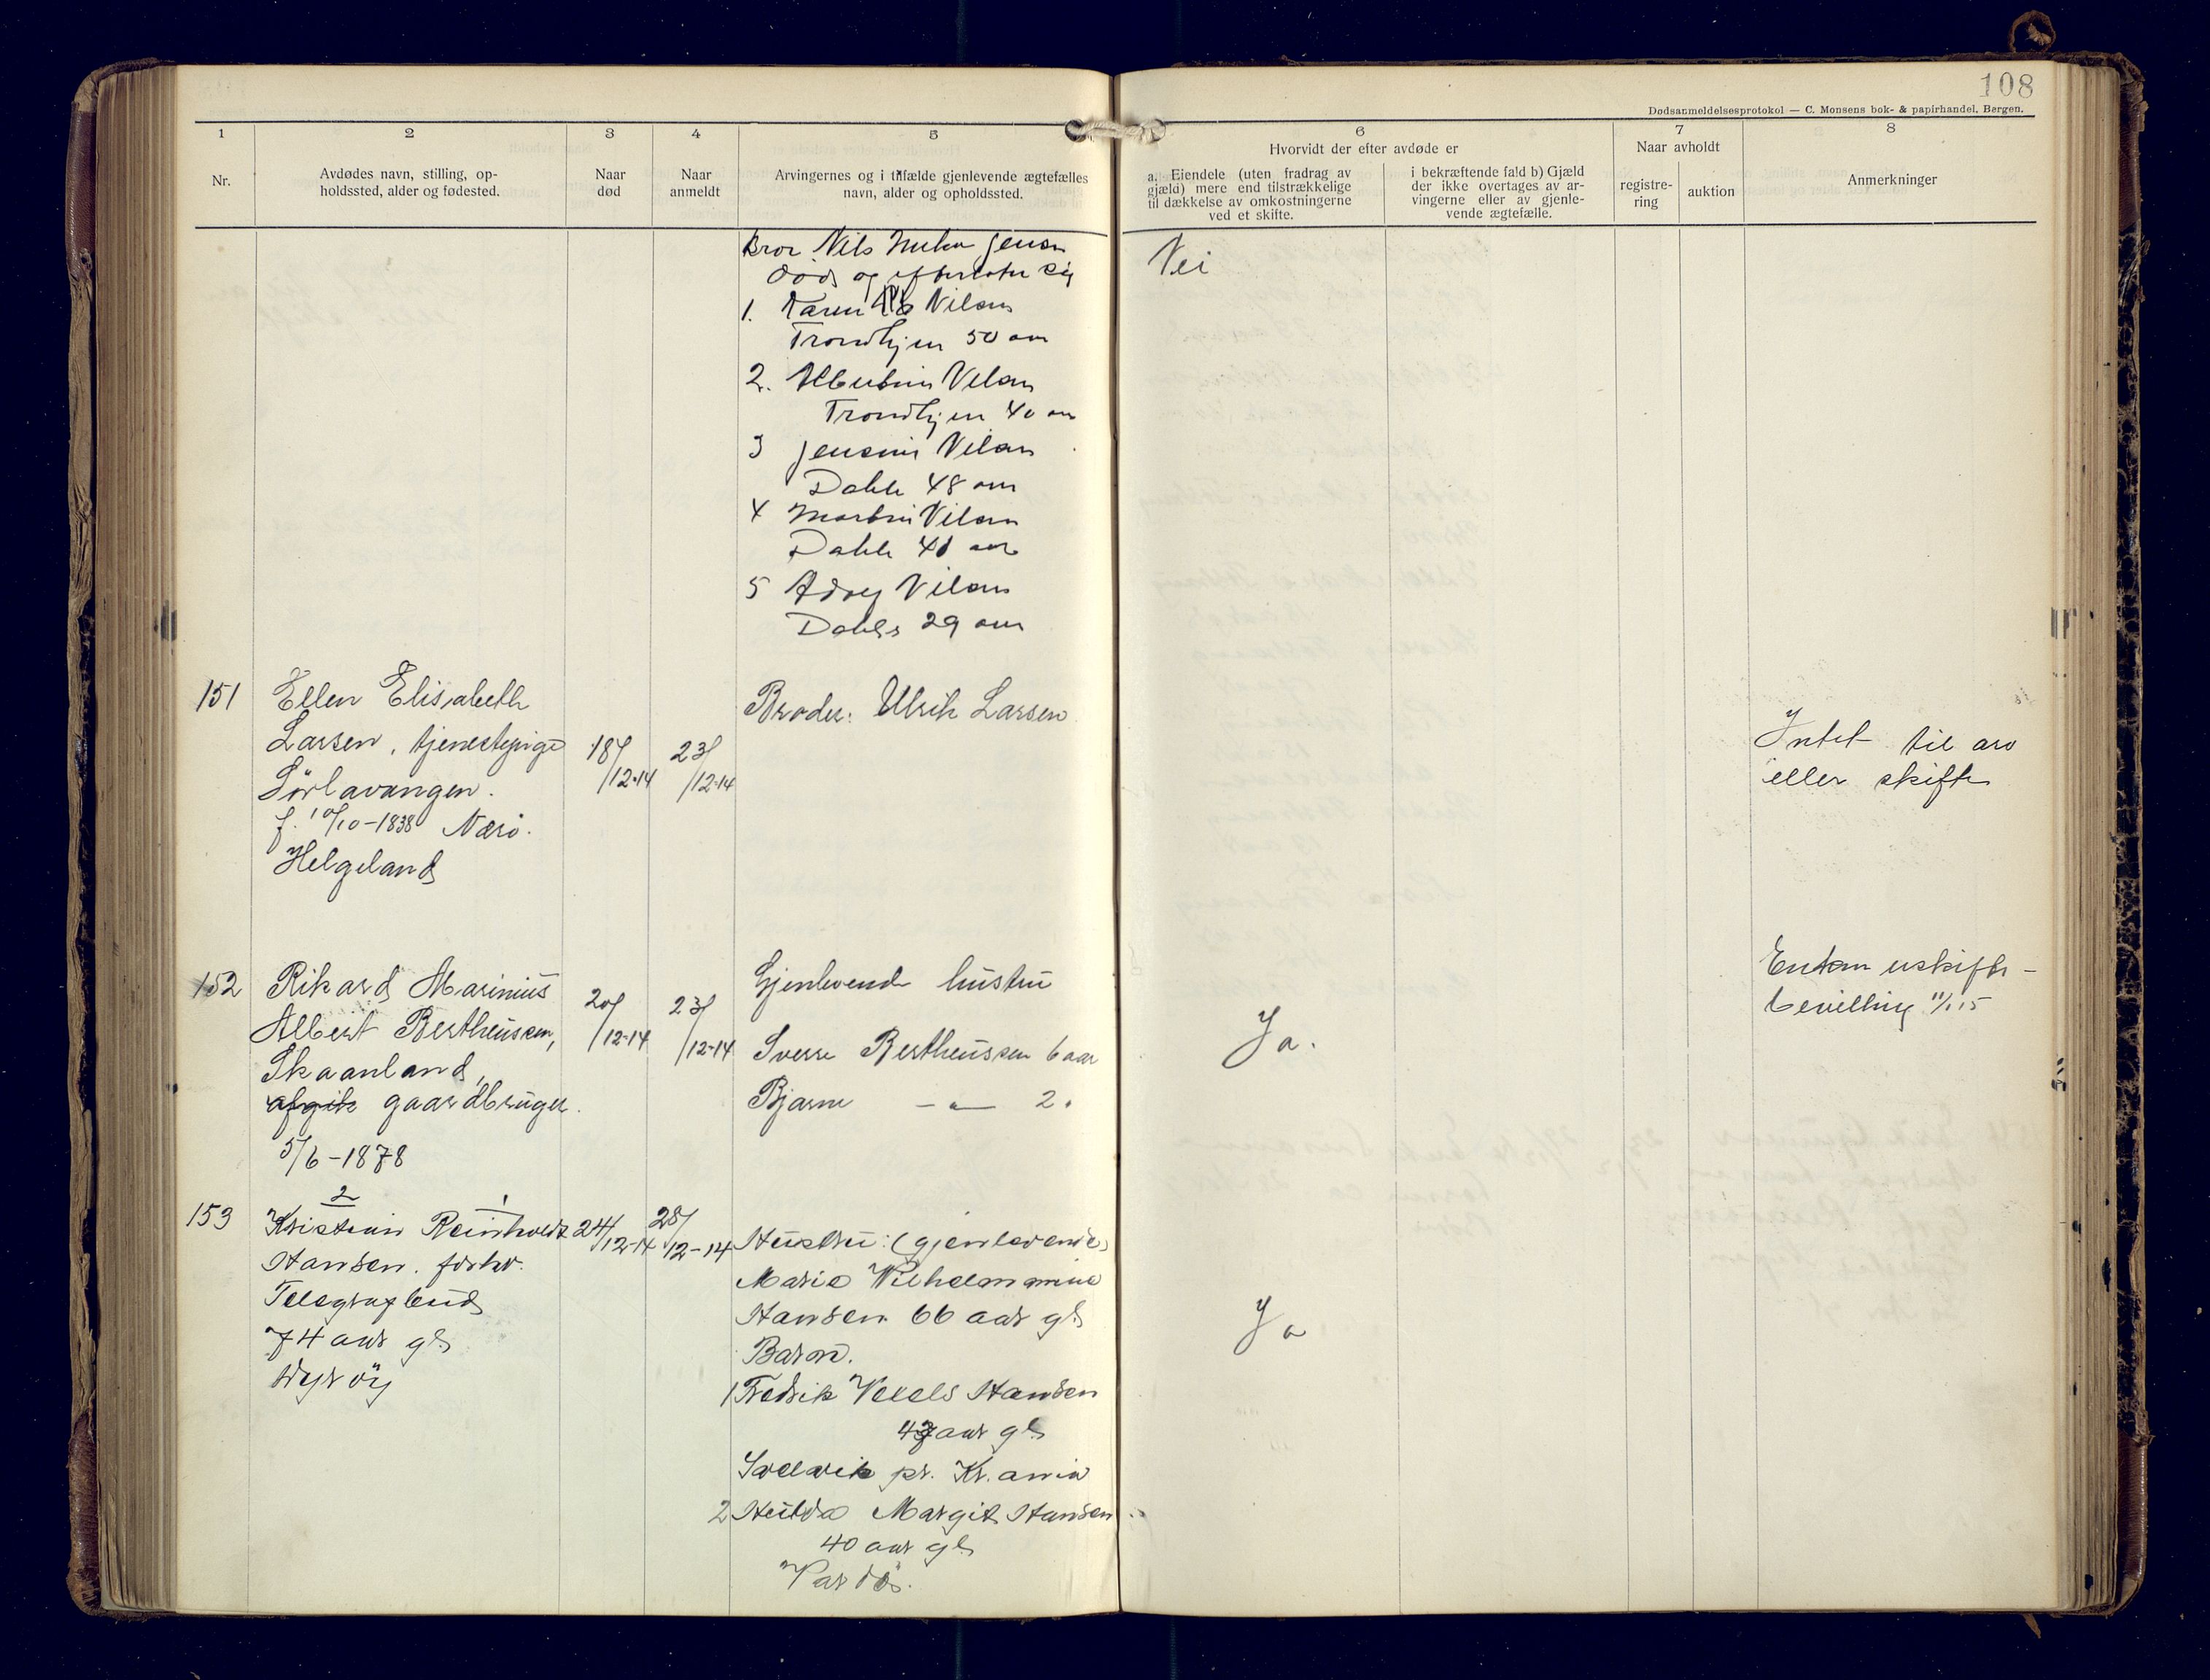 108
Dødsanmeldelsesprotokol — C. Monsens bok- & papirhandel, Bergen.
1
Nr.
2
Avdødes navn, stilling, op-
holdssted, alder og fødested.
3
Naar
død
4
Naar
anmeldt
5
Arvingernes og i tilfælde gjenlevende ægtefælles
navn, alder og opholdssted.
6
Hvorvidt der efter avdøde er
a. Eiendele (uten fradrag av
gjæld) mere end tilstrækkelige
til dækkelse av omkostningerne
ved et skifte.
i bekræftende fald b) Gjæld
der ikke overtages av ar-
vingerne eller av gjenle-
vende ægtefælle.
7
Naar avholdt
registre-
ring
auktion
8
Anmerkninger
Bror Nils Jensen
død og efterlater sig
Nei
1. Karen Nilsen
Trondhjem 50 aar
2. Albertine Nilsen
Trondhjem 40 aar
3 Jensine Nilsen
Dahle 48 aar
4 Martin Nilsen
Dahle 41 aar
5 Nilsen
Dahle 29 aar
151
Ellen Elisabeth
Larsen, tjenestepige
Sørlavangen.
f. 10/10-1838 Nærö.
Helgeland
18/12-14
23/12-14
Broder: Ulrik Larsen
Intet til arv
eller skifte
152
Rikard Marinius
Albert Bertheussen,
Skaanland,
gaardbruger.
5/6-1878
20/12-14
23/12-14
Gjenlevende hustru
Sverre Bertheussen 6 aar
Bjarne —"— 2.
Ja.
Enken uskifte-
bevilling 11/1 15
153
2 1
Kristian Reinholdt
Hansen. forhv.
Telegrafbud
74 aar gl.
Dyröy
24/12-14
28/12-14
Hustru: (gjenlevende)
Marie Vilhelmmine
Hansen 66 aar gl.
Barn.
1 Fredrik Vexels Hansen
43 aar gl.
Svelvik pr. Kr.ania
2 Hulda Margit Hansen
40 aar gl.
Vardö.
Ja